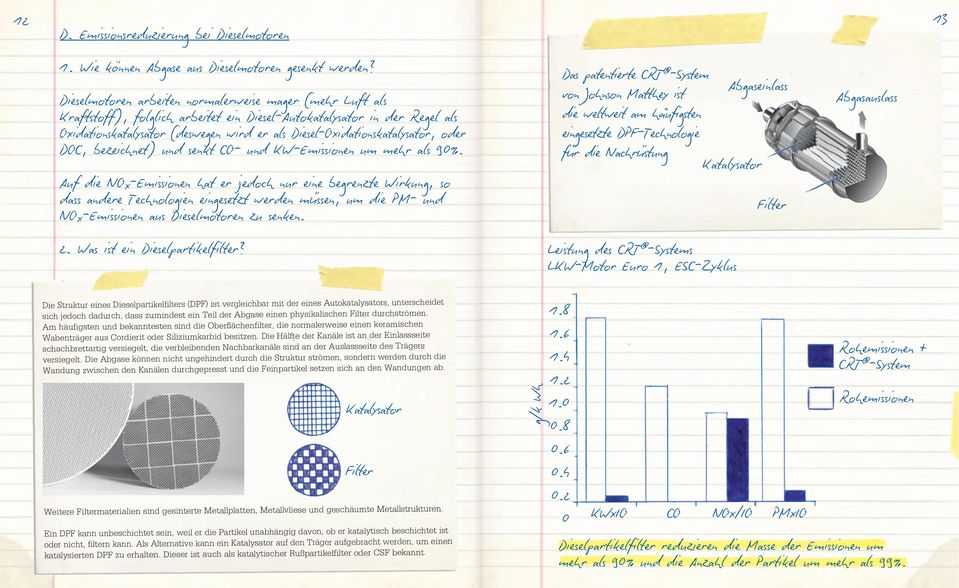 12
D. Emissionsreduzierung bei Dieselmotoren
1. Wie können Abgase aus Dieselmotoren gesenkt werden?
Dieselmotoren arbeiten normalerweise mager (mehr Luft als
Kraftstoff), folglich arbeitet ein Diesel-Autokatalysator in der Regel als
Oxidationskatalysator (deswegen wird er als Diesel-Oxidationskatalysator, oder
DOC, bezeichnet) und senkt CO- und KW-Emissionen um mehr als 90%.
Auf die NOx-Emissionen hat er jedoch nur eine begrenzte Wirkung, so
dass andere Technologien eingesetzt werden müssen, um die PM- und
NOx-Emissionen aus Dieselmotoren zu senken.
2. Was ist ein Dieselpartikelfilter?
Die Struktur eines Dieselpartikelfilters (DPF) ist vergleichbar mit der eines Autokatalysators, unterscheidet
sich jedoch dadurch, dass zumindest ein Teil der Abgase einen physikalischen Filter durchströmen.
Am häufigsten und bekanntesten sind die Oberflächenfilter, die normalerweise einen keramischen
Wabenträger aus Cordierit oder Siliziumkarbid besitzen. Die Hälfte der Kanäle ist an der Einlassseite
schachbrettartig versiegelt, die verbleibenden Nachbarkanäle sind an der Auslassseite des Trägers
versiegelt. Die Abgase können nicht ungehindert durch die Struktur strömen, sondern werden durch die
Wandung zwischen den Kanälen durchgepresst und die Feinpartikel setzen sich an den Wandungen ab.
Katalysator
Filter
Weitere Filtermaterialien sind gesinterte Metallplatten, Metallvliese und geschäumte Metallstrukturen.
Ein DPF kann unbeschichtet sein, weil er die Partikel unabhängig davon, ob er katalytisch beschichtet ist
oder nicht, filtern kann. Als Alternative kann ein Katalysator auf den Träger aufgebracht werden, um einen
katalysierten DPF zu erhalten. Dieser ist auch als katalytischer Rußpartikelfilter oder CSF bekannt.
13
Das patentierte CRT®-System
von Johnson Matthey ist
die weltweit am häufigsten
eingesetzte DPF-Technologie
für die Nachrüstung
Abgaseinlass
Abgasauslass
Katalysator
Filter
Leistung des CRT®-Systems
LKW-Motor Euro 1, ESC-Zyklus
1.8
1.6
1.4
1.2
1.0
0.8
0.6
0.4
0.2
0
g/k Wh
KWx10
CO
NOx/10
PMx10
Rohemissionen +
CRT®-System
Rohemissionen
Dieselpartikelfilter reduzieren die Masse der Emissionen um
mehr als 90% und die Anzahl der Partikel um mehr als 99%.